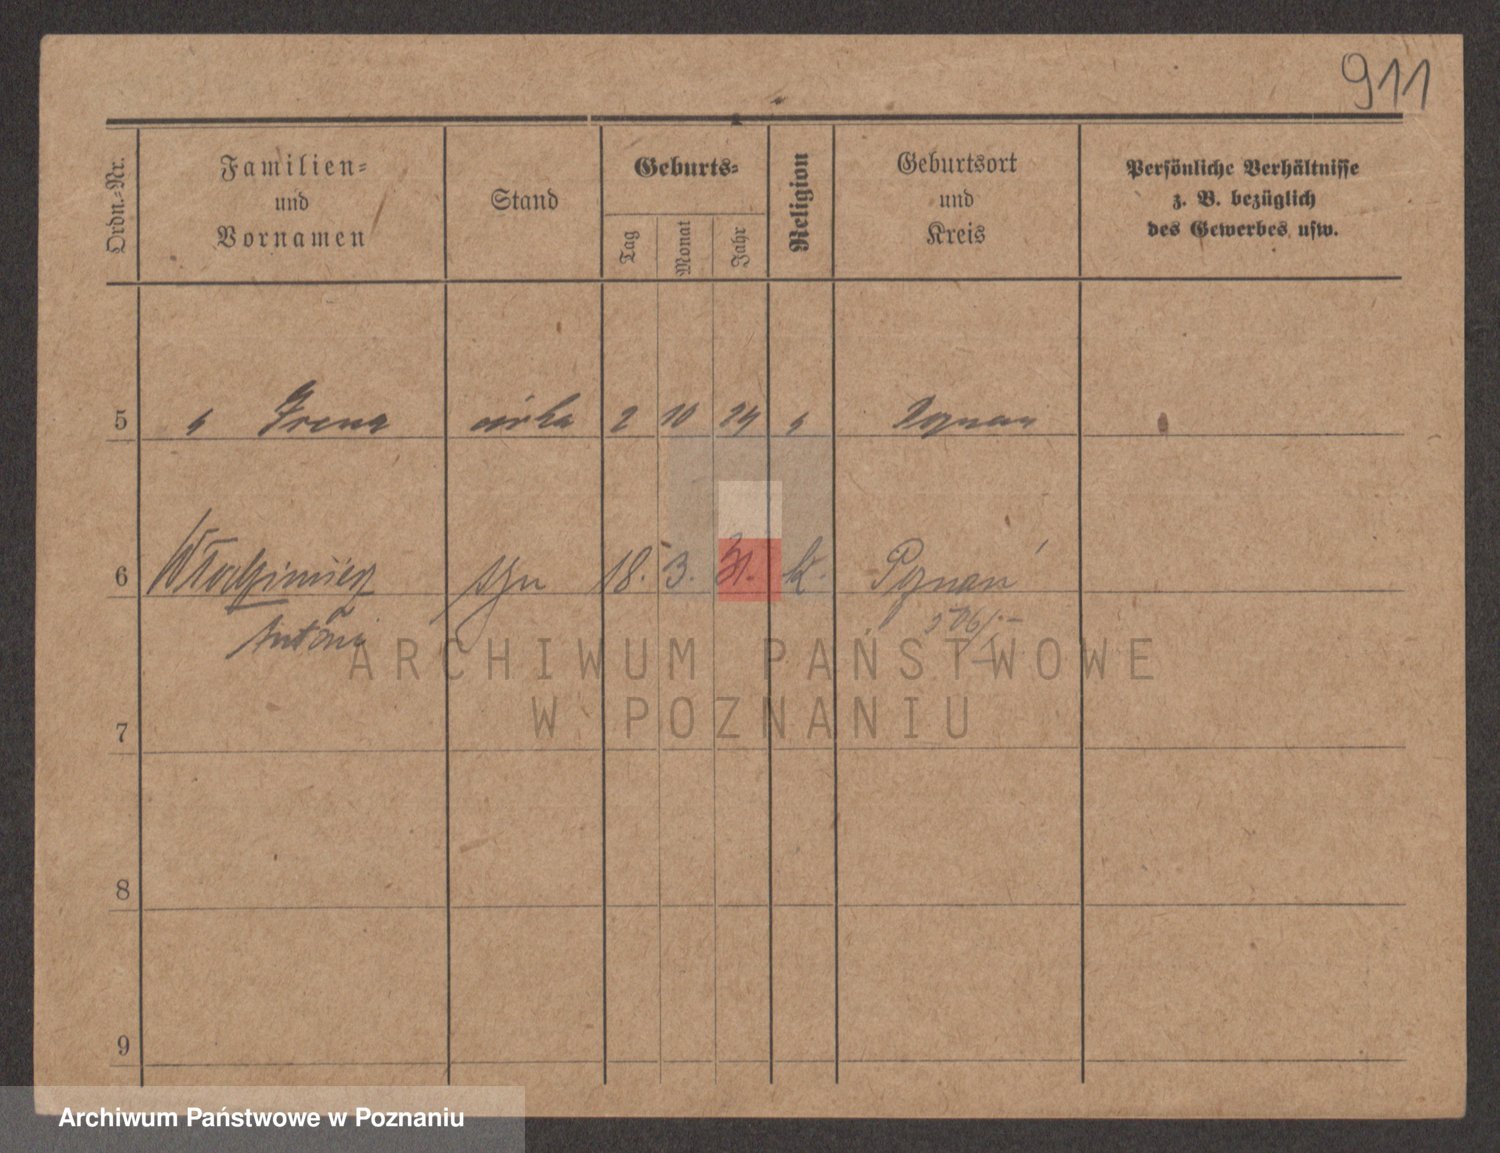 911
Ordn.-Nr.
Familien-
und
Vornamen
Stand
Geburts-
Tag
Monat
Jahr
Religion
Geburtsort
und
Kreis
Persönliche Verhältnisse
z. B. bezüglich
des Gewerbes usw.
5 Irena córka 2 10 24
6 Włodzimierz syn 18. 3. 31. k. Poznań
Antoni
ARCHIWUM PAŃSTWOWE
W POZNANIU
7
8
9
Archiwum Państwowe w Poznaniu